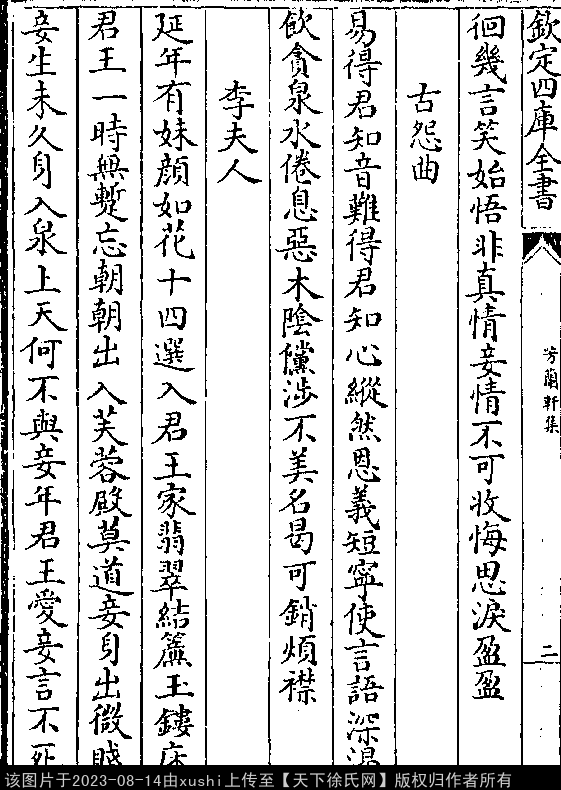 欽定四庫全書
芳蘭軒集
二
徊幾言笑始悟非真情妾情不可收悔思淚盈盈
古怨曲
易得君知音難得君知心縱然恩義短寧使言語深渴
飲貪泉水倦息惡木陰儻涉不美名曷可銷煩襟
李夫人
延年有妹顔如花十四選入君王家翡翠結簾玉鏤床
君王一時無暫忘朝朝出入芙蓉殿莫道妾身出微賤
妾生未久身入泉上天何不與妾年君王愛妾言不死
该图片于2023-08-14由xushi上传至【天下徐氏网】版权归作者所有